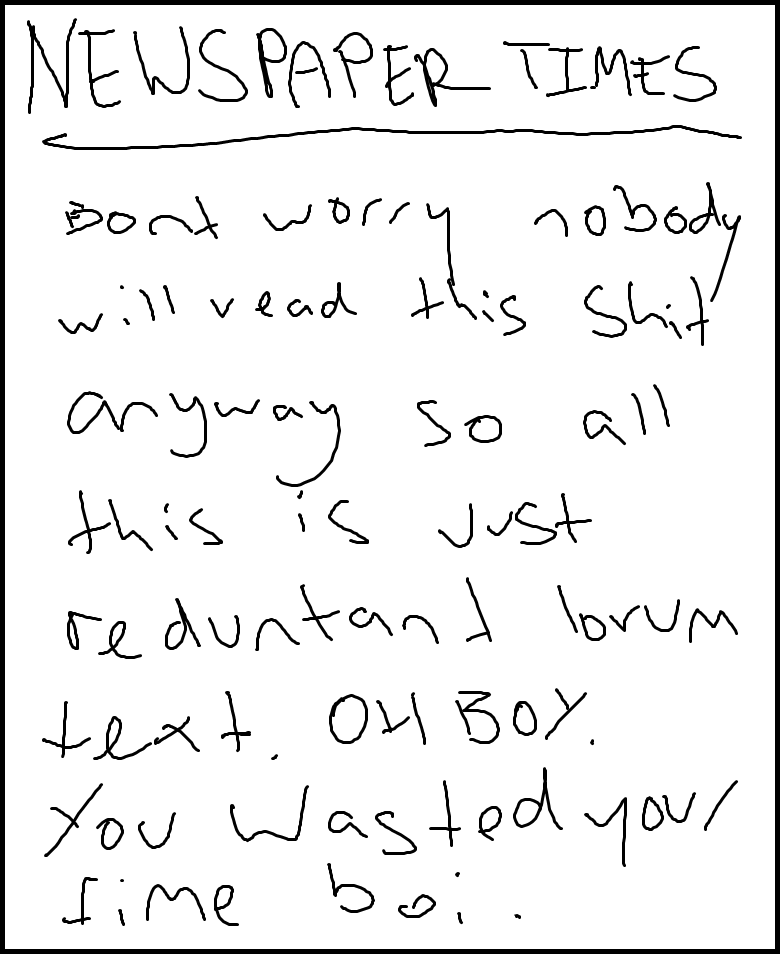 NEWSPAPER TIMES
Dont worry nobody
will read this shit
anyway so all
this is just
reduntant lorum
text. OH BOY.
You wasted your
time boi.